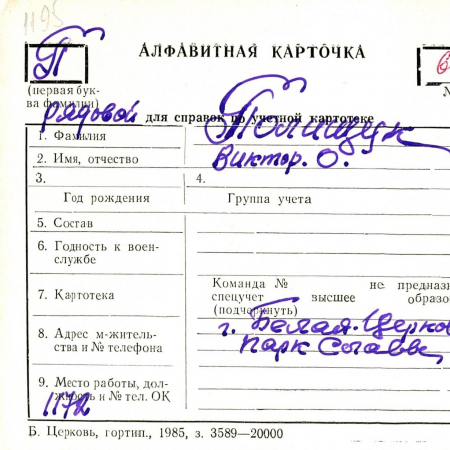 1195
П
АЛФАВИТНАЯ КАРТОЧКА
(первая бук-
ва фамилии)
рядовой для справок по учетной картотеке
1. Фамилия Полищук
2. Имя, отчество Виктор. О.
3. 4.
Год рождения Группа учета
5. Состав
6. Годность к воен-
службе
7. Картотека Команда № не предназн
спецучет высшее образо
(подчеркнуть)
8. Адрес м-житель- г. Белая-Церков
ства и № телефона парк
9. Место работы, дол-
жность и № тел. ОК
1172
Б. Церковь, гортип., 1985, з. 3589—20000